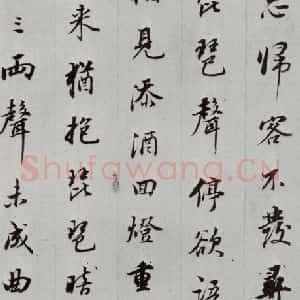 忘歸客不發尋
琵琶聲停欲語
相見添酒回燈重
来猶抱琵琶
三兩聲未成曲
Shufawang.CN